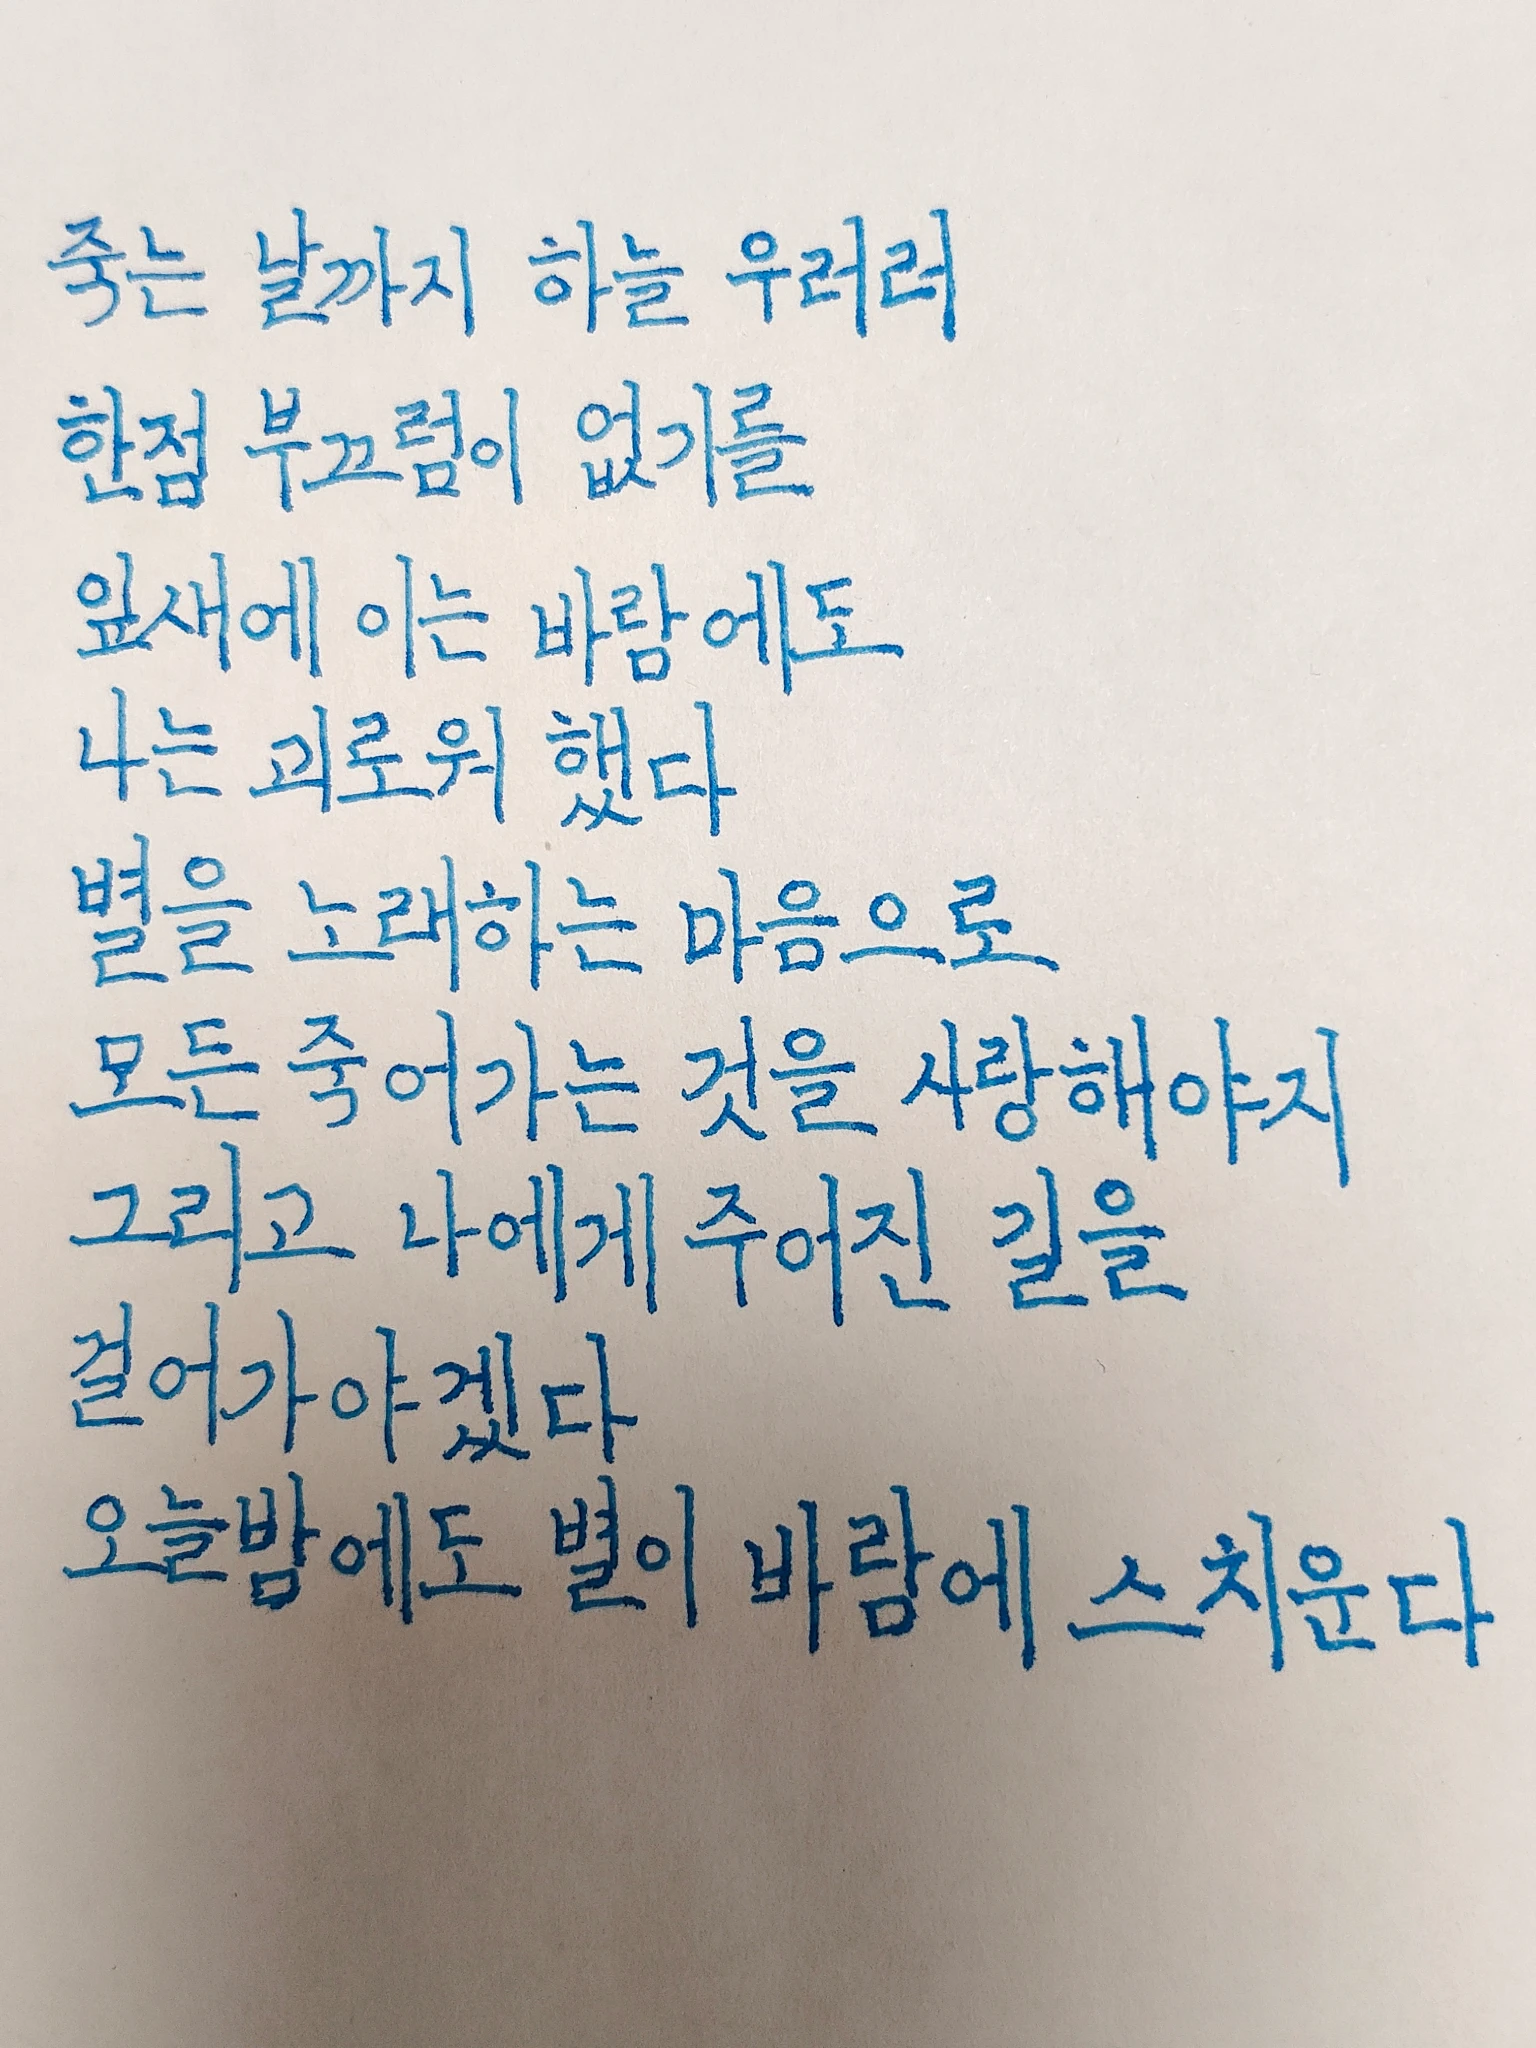 죽는 날까지 하늘 우러러
한점 부끄럼이 없기를
잎새에 이는 바람에도
나는 괴로워 했다
별을 노래하는 마음으로
모든 죽어가는 것을 사랑해야지
그리고 나에게 주어진 길을
걸어가야겠다
오늘밤에도 별이 바람에 스치운다